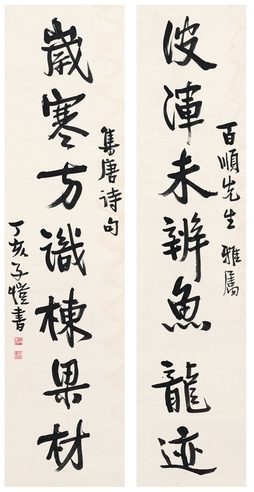 百順先生 雅屬
波渾未辨魚龍迹
集唐诗句
歲寒方識棟果材
丁亥子愷書